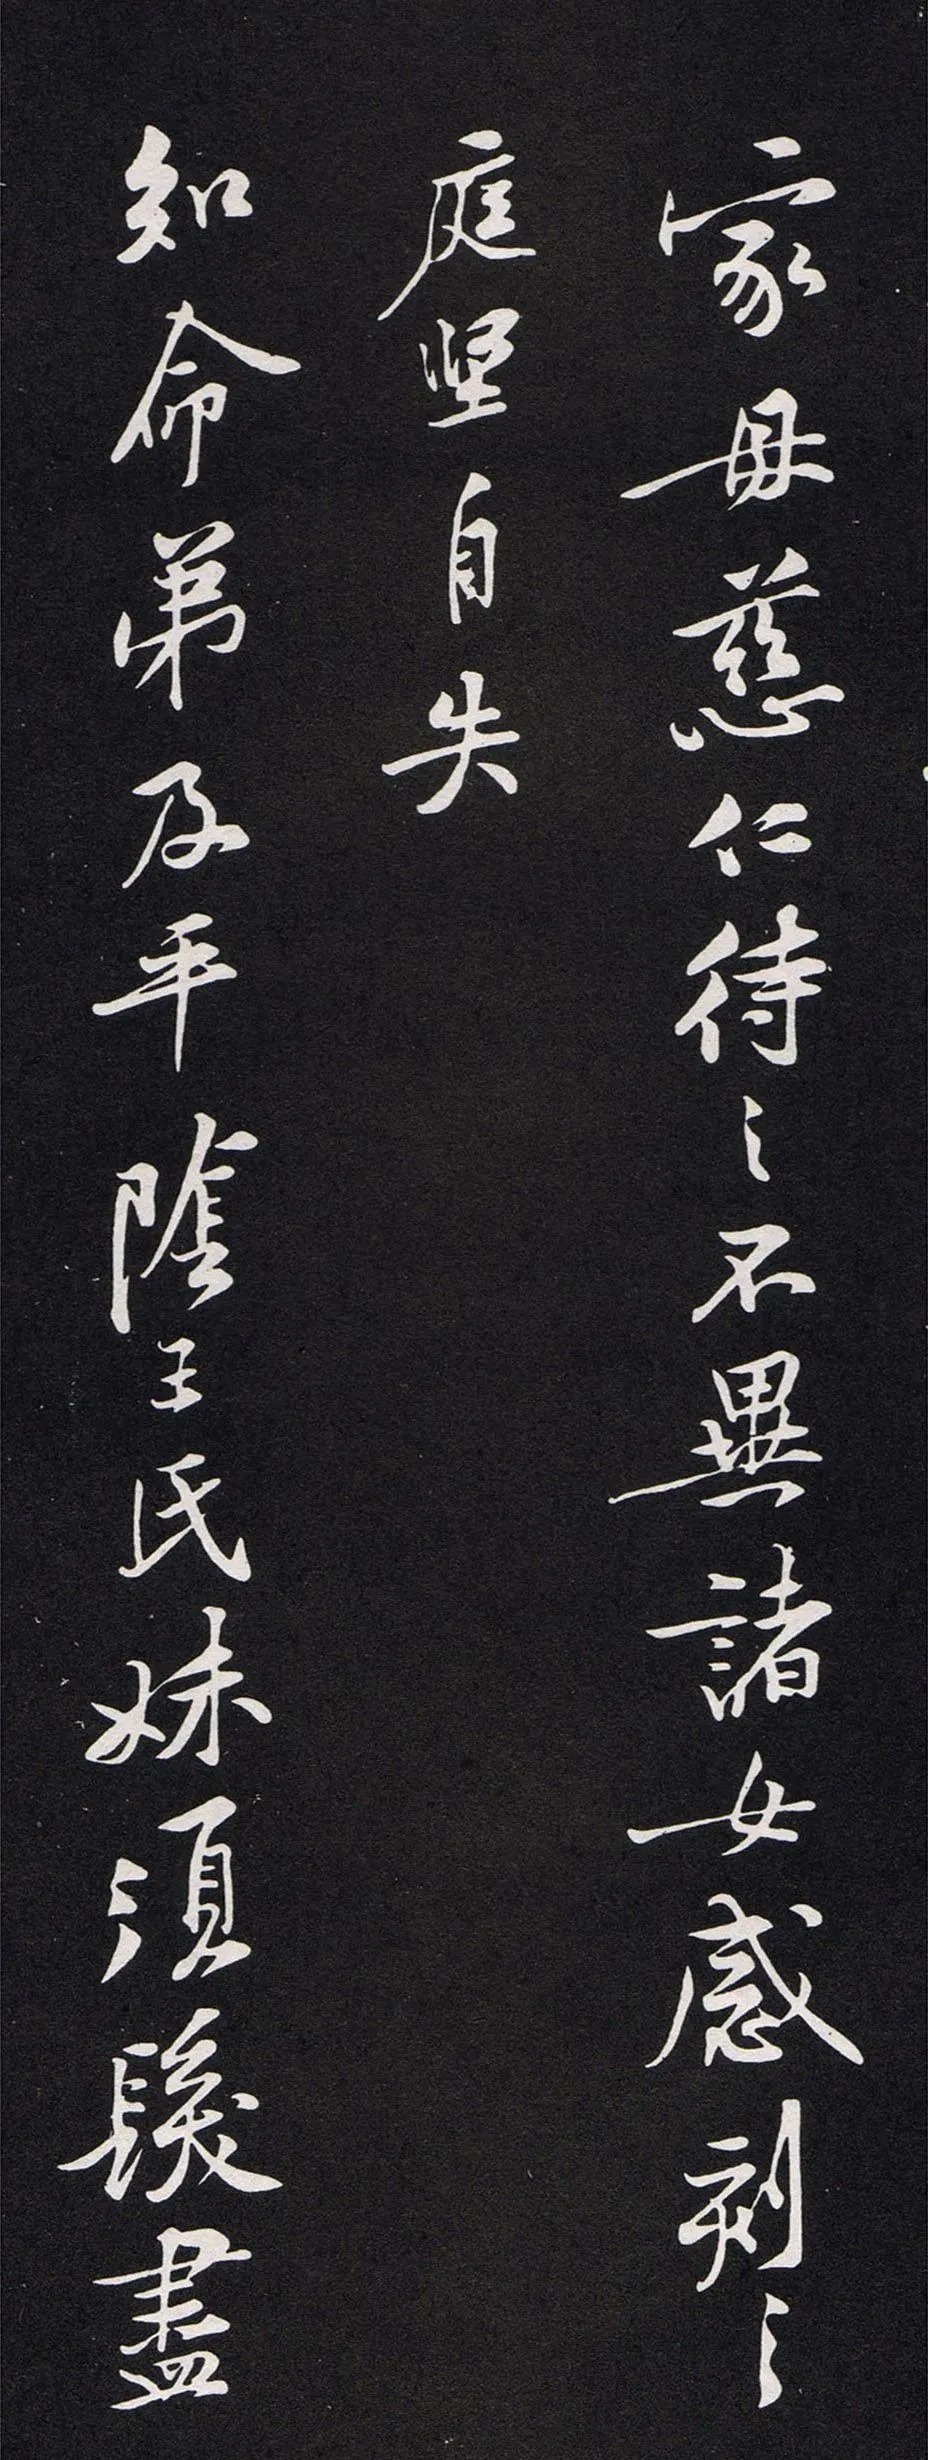 家母慈仁待之不異諸女感刻之
庭堅自失
知命弟及平陰王氏妹須髮盡